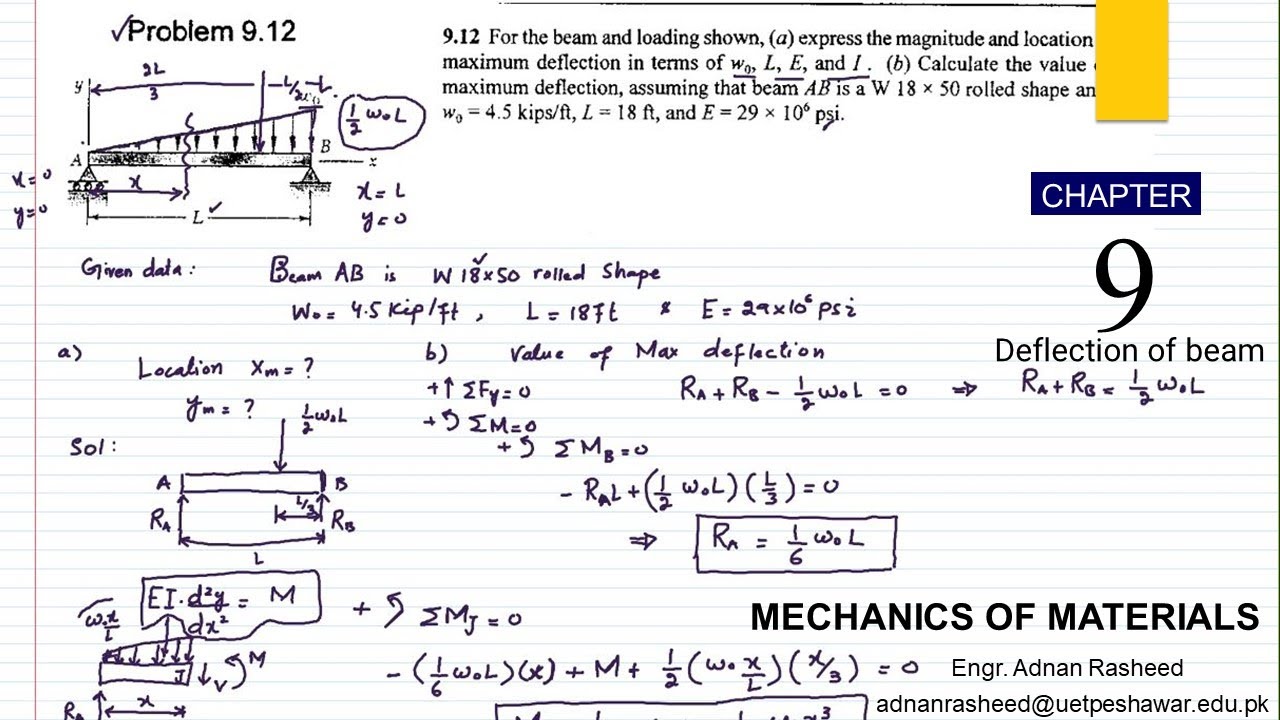 ✓Problem 9.12
9.12 For the beam and loading shown, (a) express the magnitude and location
maximum deflection in terms of w₀, L, E, and I. (b) Calculate the value
maximum deflection, assuming that beam AB is a W 18 × 50 rolled shape an
w₀ = 4.5 kips/ft, L = 18 ft, and E = 29 × 10⁶ psi.
2L
3
y
½ w₀L
A
B
x
x
x = 0
y = 0
x = L
y = 0
L ✓
CHAPTER
9
Deflection of beam
Given data: Beam AB is W 18×50 rolled Shape
W₀ = 4.5 Kip/ft, L = 18ft & E = 29×10⁶ psi
a) Location xm = ?
ym = ?
b) Value of Max deflection
+↑ ΣFy = 0 RA + RB - ½ w₀L = 0 ⇒ RA + RB = ½ w₀L
+↺ ΣM = 0
+↺ ΣMB = 0
- RAL + (½ w₀L)(L/3) = 0
⇒ RA = 1/6 w₀L
Sol:
½ w₀L
A
B
RA
L/3
RB
L
EI. d²y/dx² = M
+↺ ΣMJ = 0
- (1/6 w₀L)(x) + M + ½ (w₀ x/L)(x/3) = 0
w₀x/L
J
V
M
RA
x
MECHANICS OF MATERIALS
Engr. Adnan Rasheed
adnanrasheed@uetpeshawar.edu.pk